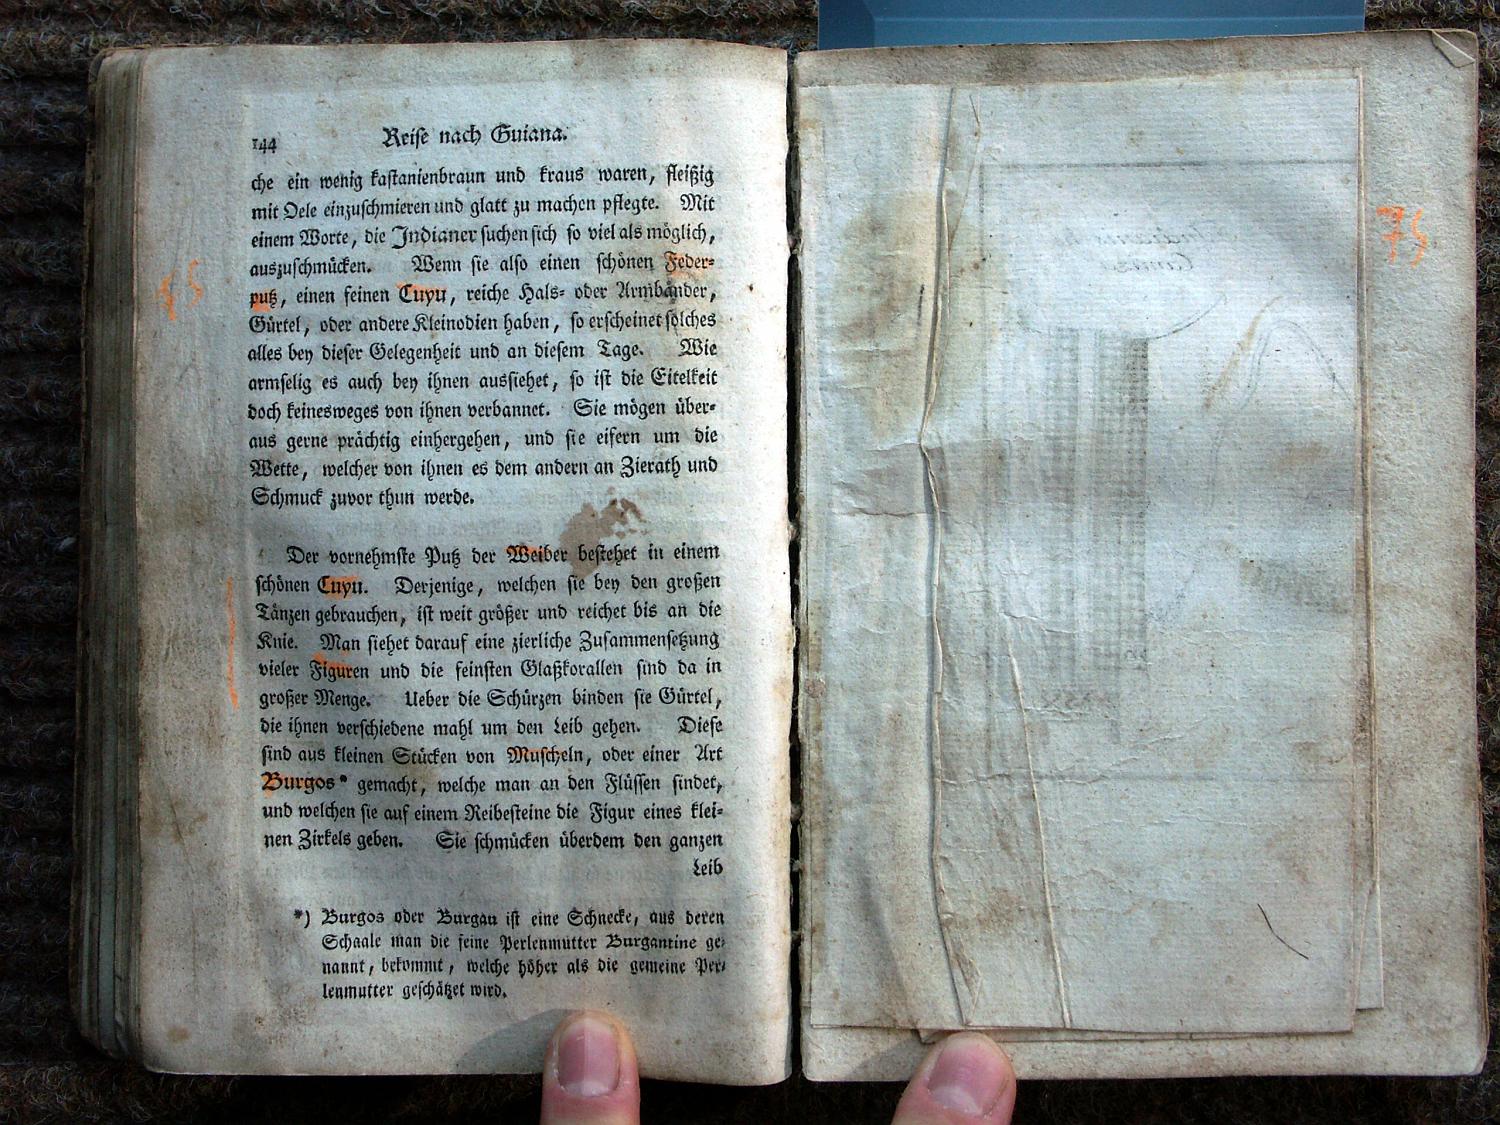 144 Reise nach Guiana.
che ein wenig kastanienbraun und kraus waren, fleißig
mit Oele einzuschmieren und glatt zu machen pflegte. Mit
einem Worte, die Indianer suchen sich so viel als möglich,
auszuschmücken. Wenn sie also einen schönen Feder-
putz, einen feinen Cuyu, reiche Hals- oder Armbänder,
Gürtel, oder andere Kleinodien haben, so erscheinet solches
alles bey dieser Gelegenheit und an diesem Tage. Wie
armselig es auch bey ihnen aussiehet, so ist die Eitelkeit
doch keinesweges von ihnen verbannet. Sie mögen über-
aus gerne prächtig einhergehen, und sie eifern um die
Wette, welcher von ihnen es dem andern an Zierath und
Schmuck zuvor thun werde.
Der vornehmste Putz der Weiber bestehet in einem
schönen Cuyu. Derjenige, welchen sie bey den großen
Tänzen gebrauchen, ist weit größer und reichet bis an die
Knie. Man siehet darauf eine zierliche Zusammensetzung
vieler Figuren und die feinsten Glaßkorallen sind da in
großer Menge. Ueber die Schürzen binden sie Gürtel,
die ihnen verschiedene mahl um den Leib gehen. Diese
sind aus kleinen Stücken von Muscheln, oder einer Art
Burgos* gemacht, welche man an den Flüssen findet,
und welchen sie auf einem Reibesteine die Figur eines klei-
nen Zirkels geben. Sie schmücken überdem den ganzen
Leib
*) Burgos oder Burgau ist eine Schnecke, aus deren
Schaale man die feine Perlenmutter Burgantine ge-
nannt, bekommt, welche höher als die gemeine Per-
lenmutter geschätzet wird.
75